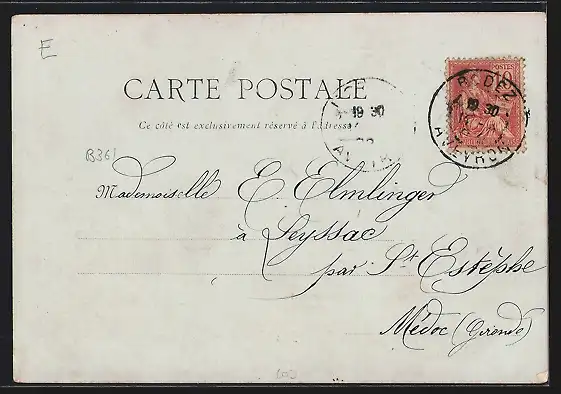 E
CARTE POSTALE
Ce côté est exclusivement réservé à l'adresse
B361
POSTES
10
RODEZ
19 30
AVEYRON
19 30
Mademoiselle E. Elmlinger
à Leyssac
par St Estèphe
Médoc (Gironde)